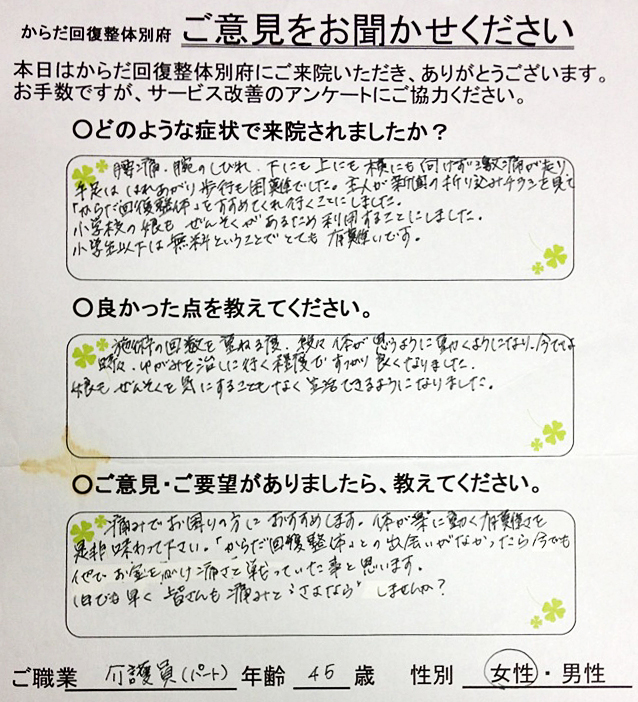 からだ回復整体別府 ご意見をお聞かせください
本日はからだ回復整体別府にご来院いただき、ありがとうございます。
お手数ですが、サービス改善のアンケートにご協力ください。
○どのような症状で来院されましたか？
腰痛、腕のしびれ、下にも上にも横にも向けず激痛が走り
手足ははれあがり歩行も困難でした。主人が新聞の折り込みチラシを見て
「からだ回復整体」をすすめてくれ行くことにしました。
小学校の娘もぜんそくがあるため利用することにしました。
小学生以下は無料ということでとても有難いです。
○良かった点を教えてください。
施術の回数を重ねる度、段々体が思うように動くようになり、今では
時々、ゆがみを治しに行く程度ですっかり良くなりました。
娘もぜんそくを気にすることもなく生活できるようになりました。
○ご意見・ご要望がありましたら、教えてください。
痛みでお困りの方におすすめします。体が楽に動く有難さを
是非味わって下さい。「からだ回復整体」との出会いがなかったら今でも
他でお金を かけ痛さと戦っていた事と思います。
1日でも早く皆さんも痛みと"さよなら"しませんか？
ご職業 介護員(パート) 年齢 45 歳 性別 女性・男性